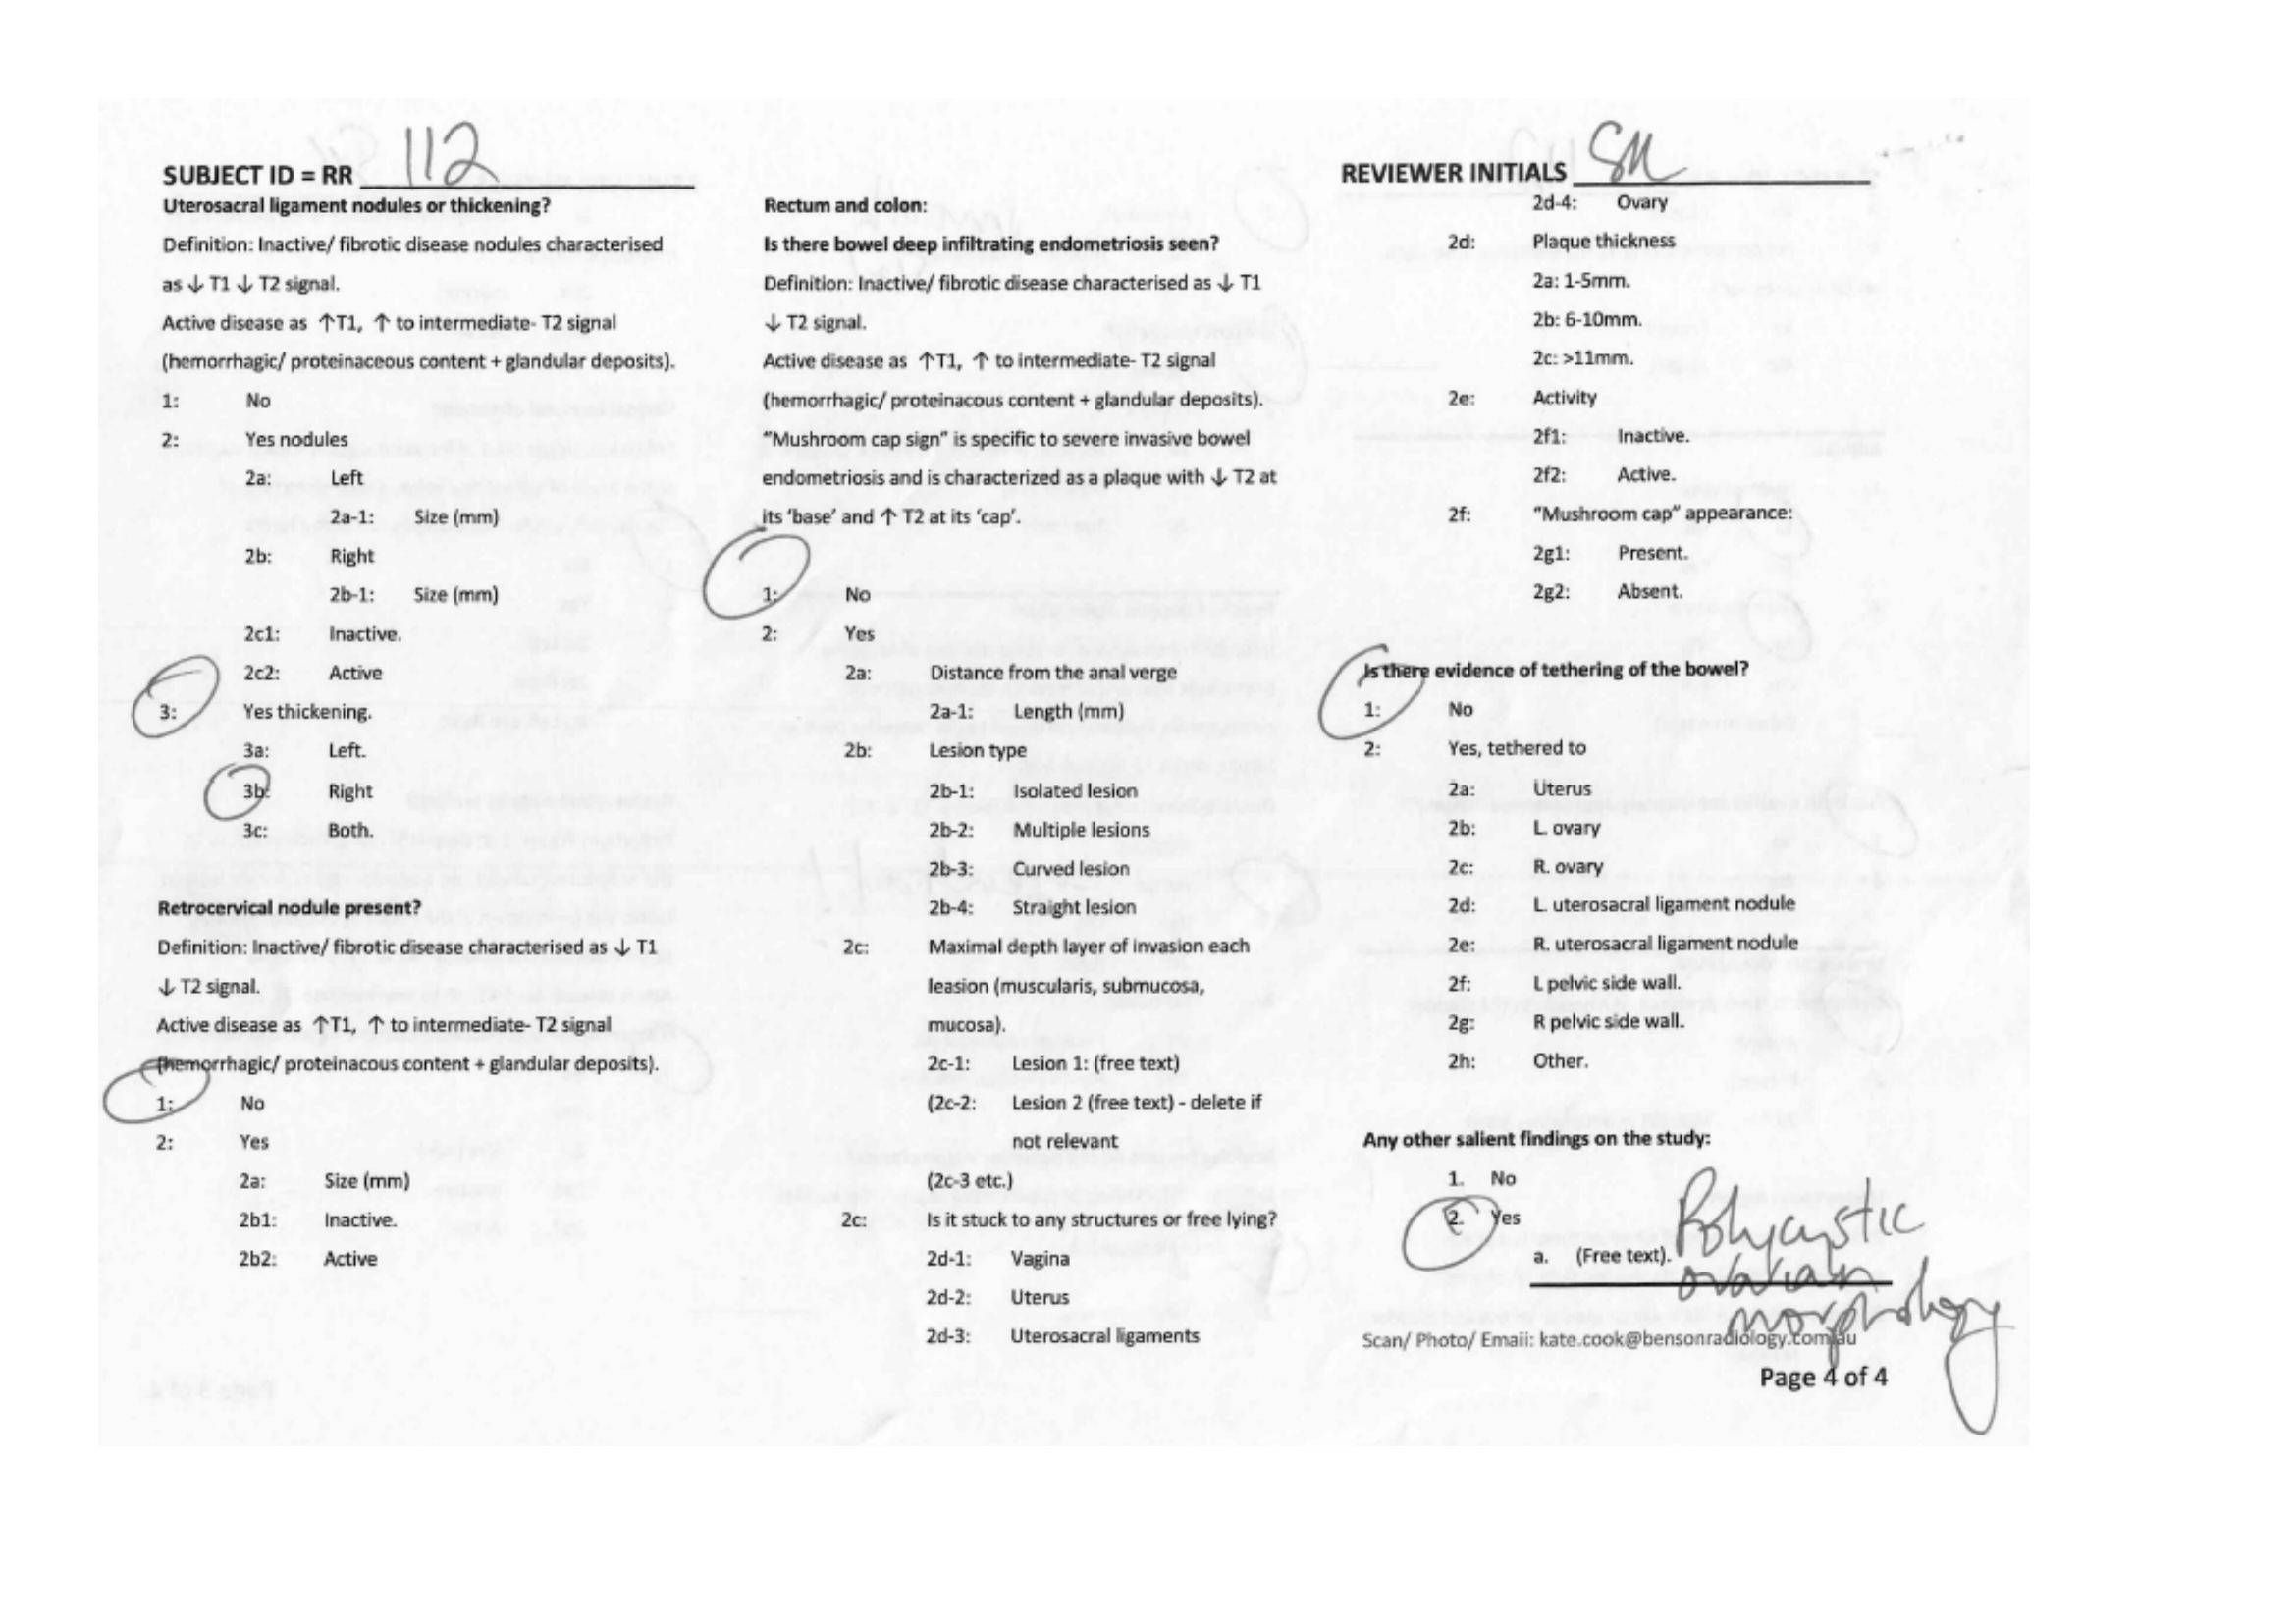 SUBJECT ID = RR 112
Uterosacral ligament nodules or thickening?
Definition: Inactive/ fibrotic disease nodules characterised
as ↓ T1 ↓ T2 signal.
Active disease as ↑T1, ↑ to intermediate- T2 signal
(hemorrhagic/ proteinaceous content + glandular deposits).
1: No
2: Yes nodules
2a: Left
2a-1: Size (mm)
2b: Right
2b-1: Size (mm)
2c1: Inactive.
2c2: Active
3: Yes thickening.
3a: Left.
3b: Right
3c: Both.
Retrocervical nodule present?
Definition: Inactive/ fibrotic disease characterised as ↓ T1
↓ T2 signal.
Active disease as ↑T1, ↑ to intermediate- T2 signal
(hemorrhagic/ proteinacous content + glandular deposits).
1: No
2: Yes
2a: Size (mm)
2b1: Inactive.
2b2: Active
Rectum and colon:
Is there bowel deep infiltrating endometriosis seen?
Definition: Inactive/ fibrotic disease characterised as ↓ T1
↓ T2 signal.
Active disease as ↑T1, ↑ to intermediate- T2 signal
(hemorrhagic/ proteinacous content + glandular deposits).
“Mushroom cap sign” is specific to severe invasive bowel
endometriosis and is characterized as a plaque with ↓ T2 at
its ‘base’ and ↑ T2 at its ‘cap’.
1: No
2: Yes
2a: Distance from the anal verge
2a-1: Length (mm)
2b: Lesion type
2b-1: Isolated lesion
2b-2: Multiple lesions
2b-3: Curved lesion
2b-4: Straight lesion
2c: Maximal depth layer of invasion each
leasion (muscularis, submucosa,
mucosa).
2c-1: Lesion 1: (free text)
(2c-2: Lesion 2 (free text) - delete if
not relevant
(2c-3 etc.)
2c: Is it stuck to any structures or free lying?
2d-1: Vagina
2d-2: Uterus
2d-3: Uterosacral ligaments
REVIEWER INITIALS SM
2d-4: Ovary
2d: Plaque thickness
2a: 1-5mm.
2b: 6-10mm.
2c: >11mm.
2e: Activity
2f1: Inactive.
2f2: Active.
2f: “Mushroom cap” appearance:
2g1: Present.
2g2: Absent.
Is there evidence of tethering of the bowel?
1: No
2: Yes, tethered to
2a: Uterus
2b: L. ovary
2c: R. ovary
2d: L. uterosacral ligament nodule
2e: R. uterosacral ligament nodule
2f: L pelvic side wall.
2g: R pelvic side wall.
2h: Other.
Any other salient findings on the study:
1. No
2. Yes
a. (Free text). Polycystic
ovarian
morphology
Scan/ Photo/ Email: kate.cook@bensonradiology.com.au
Page 4 of 4